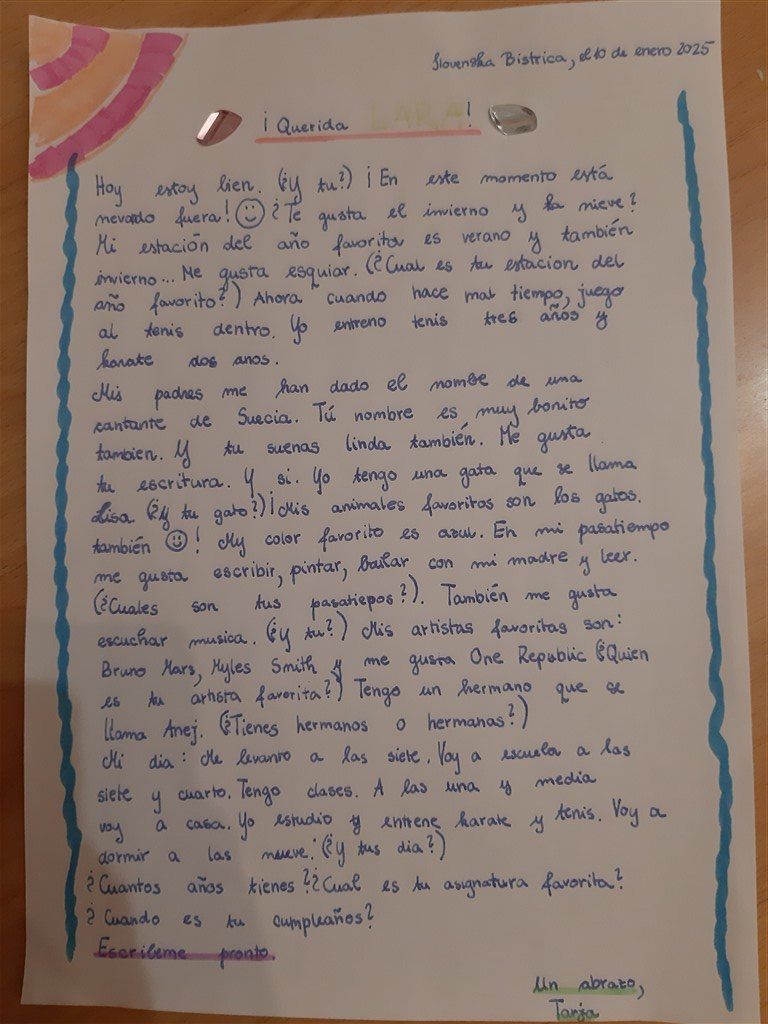 Slovenska Bistrica, el 10 de enero 2025
¡ Querida LARA!
Hoy estoy bien. (¿Y tu?) ¡En este momento está
nevado fuera! ☺ ¿Te gusta el invierno y la nieve?
Mi estación del año favorita es verano y también
invierno... Me gusta esquiar. (¿Cual es tu estacion del
año favorito?) Ahora cuando hace mal tiempo, juego
al tenis dentro. Yo entreno tenis tres años y
karate dos anos.
Mis padres me han dado el nombe de una
cantante de Suecia. Tú nombre es muy bonito
tambien. Y tu suenas linda también. Me gusta
tu escritura. Y si. Yo tengo una gata que se llama
Lisa. (¿Y tu gato?) ¡Mis animales favoritos son los gatos.
también ☺! My color favorito es azul. En mi pasatiempo
me gusta escribir, pintar, bailar con mi madre y leer.
(¿Cuales son tus pasatiepos?). También me gusta
escuchar musica. (¿Y tu?) Mis artistas favoritas son:
Bruno Mars, Myles Smith y me gusta One Republic (¿Quien
es tu artista favorita?) Tengo un hermano que se
llama Anej. (¿Tienes hermanos o hermanas?)
Mi dia: Me levanto a las siete. Voy a escuela a las
siete y cuarto. Tengo clases. A las una y media
voy a casa. Yo estudio y entrene karate y tenis. Voy a
dormir a las nueve. (¿Y tus dia?)
¿Cuantos años tienes? ¿Cual es tu asignatura favorita?
¿Cuando es tu cumpleaños?
Escribeme pronto.
Un abrazo,
Tanja